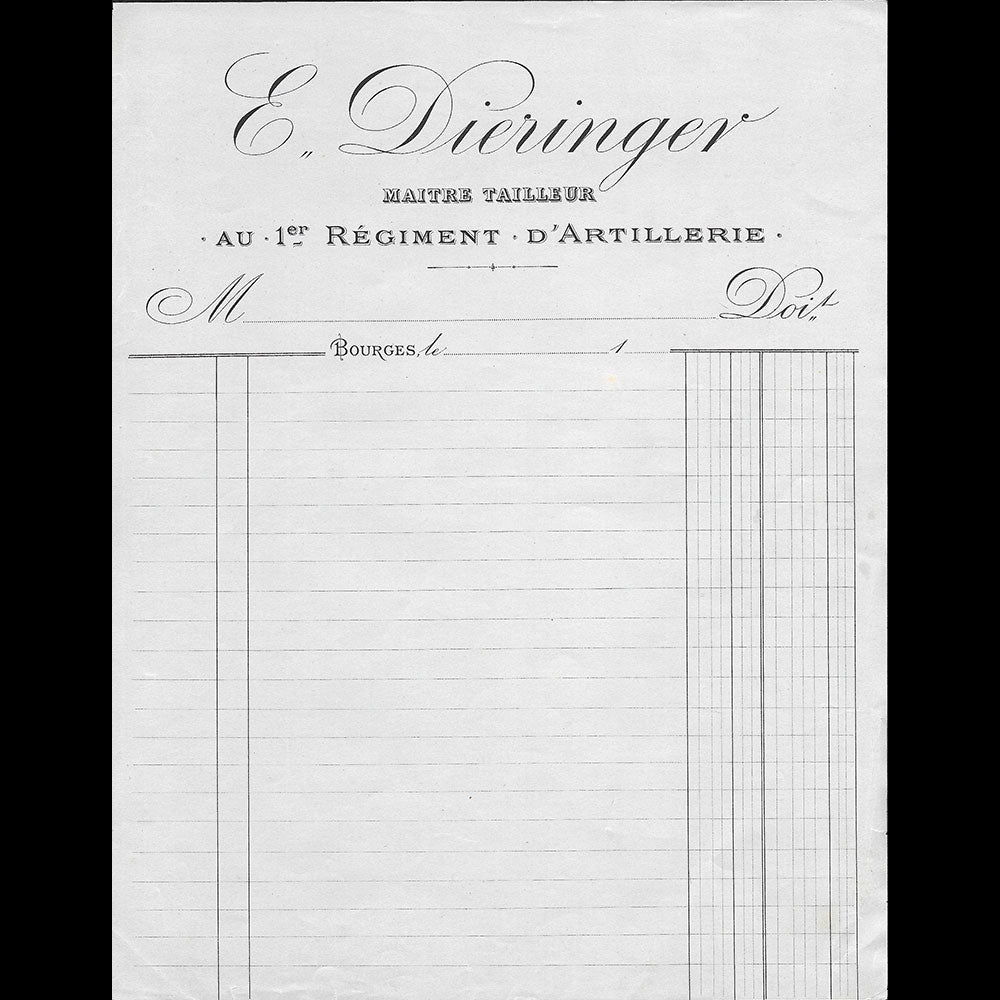 E. Dieringer
MAITRE TAILLEUR
· AU · 1er RÉGIMENT · D'ARTILLERIE ·
M Doit
BOURGES, le 1